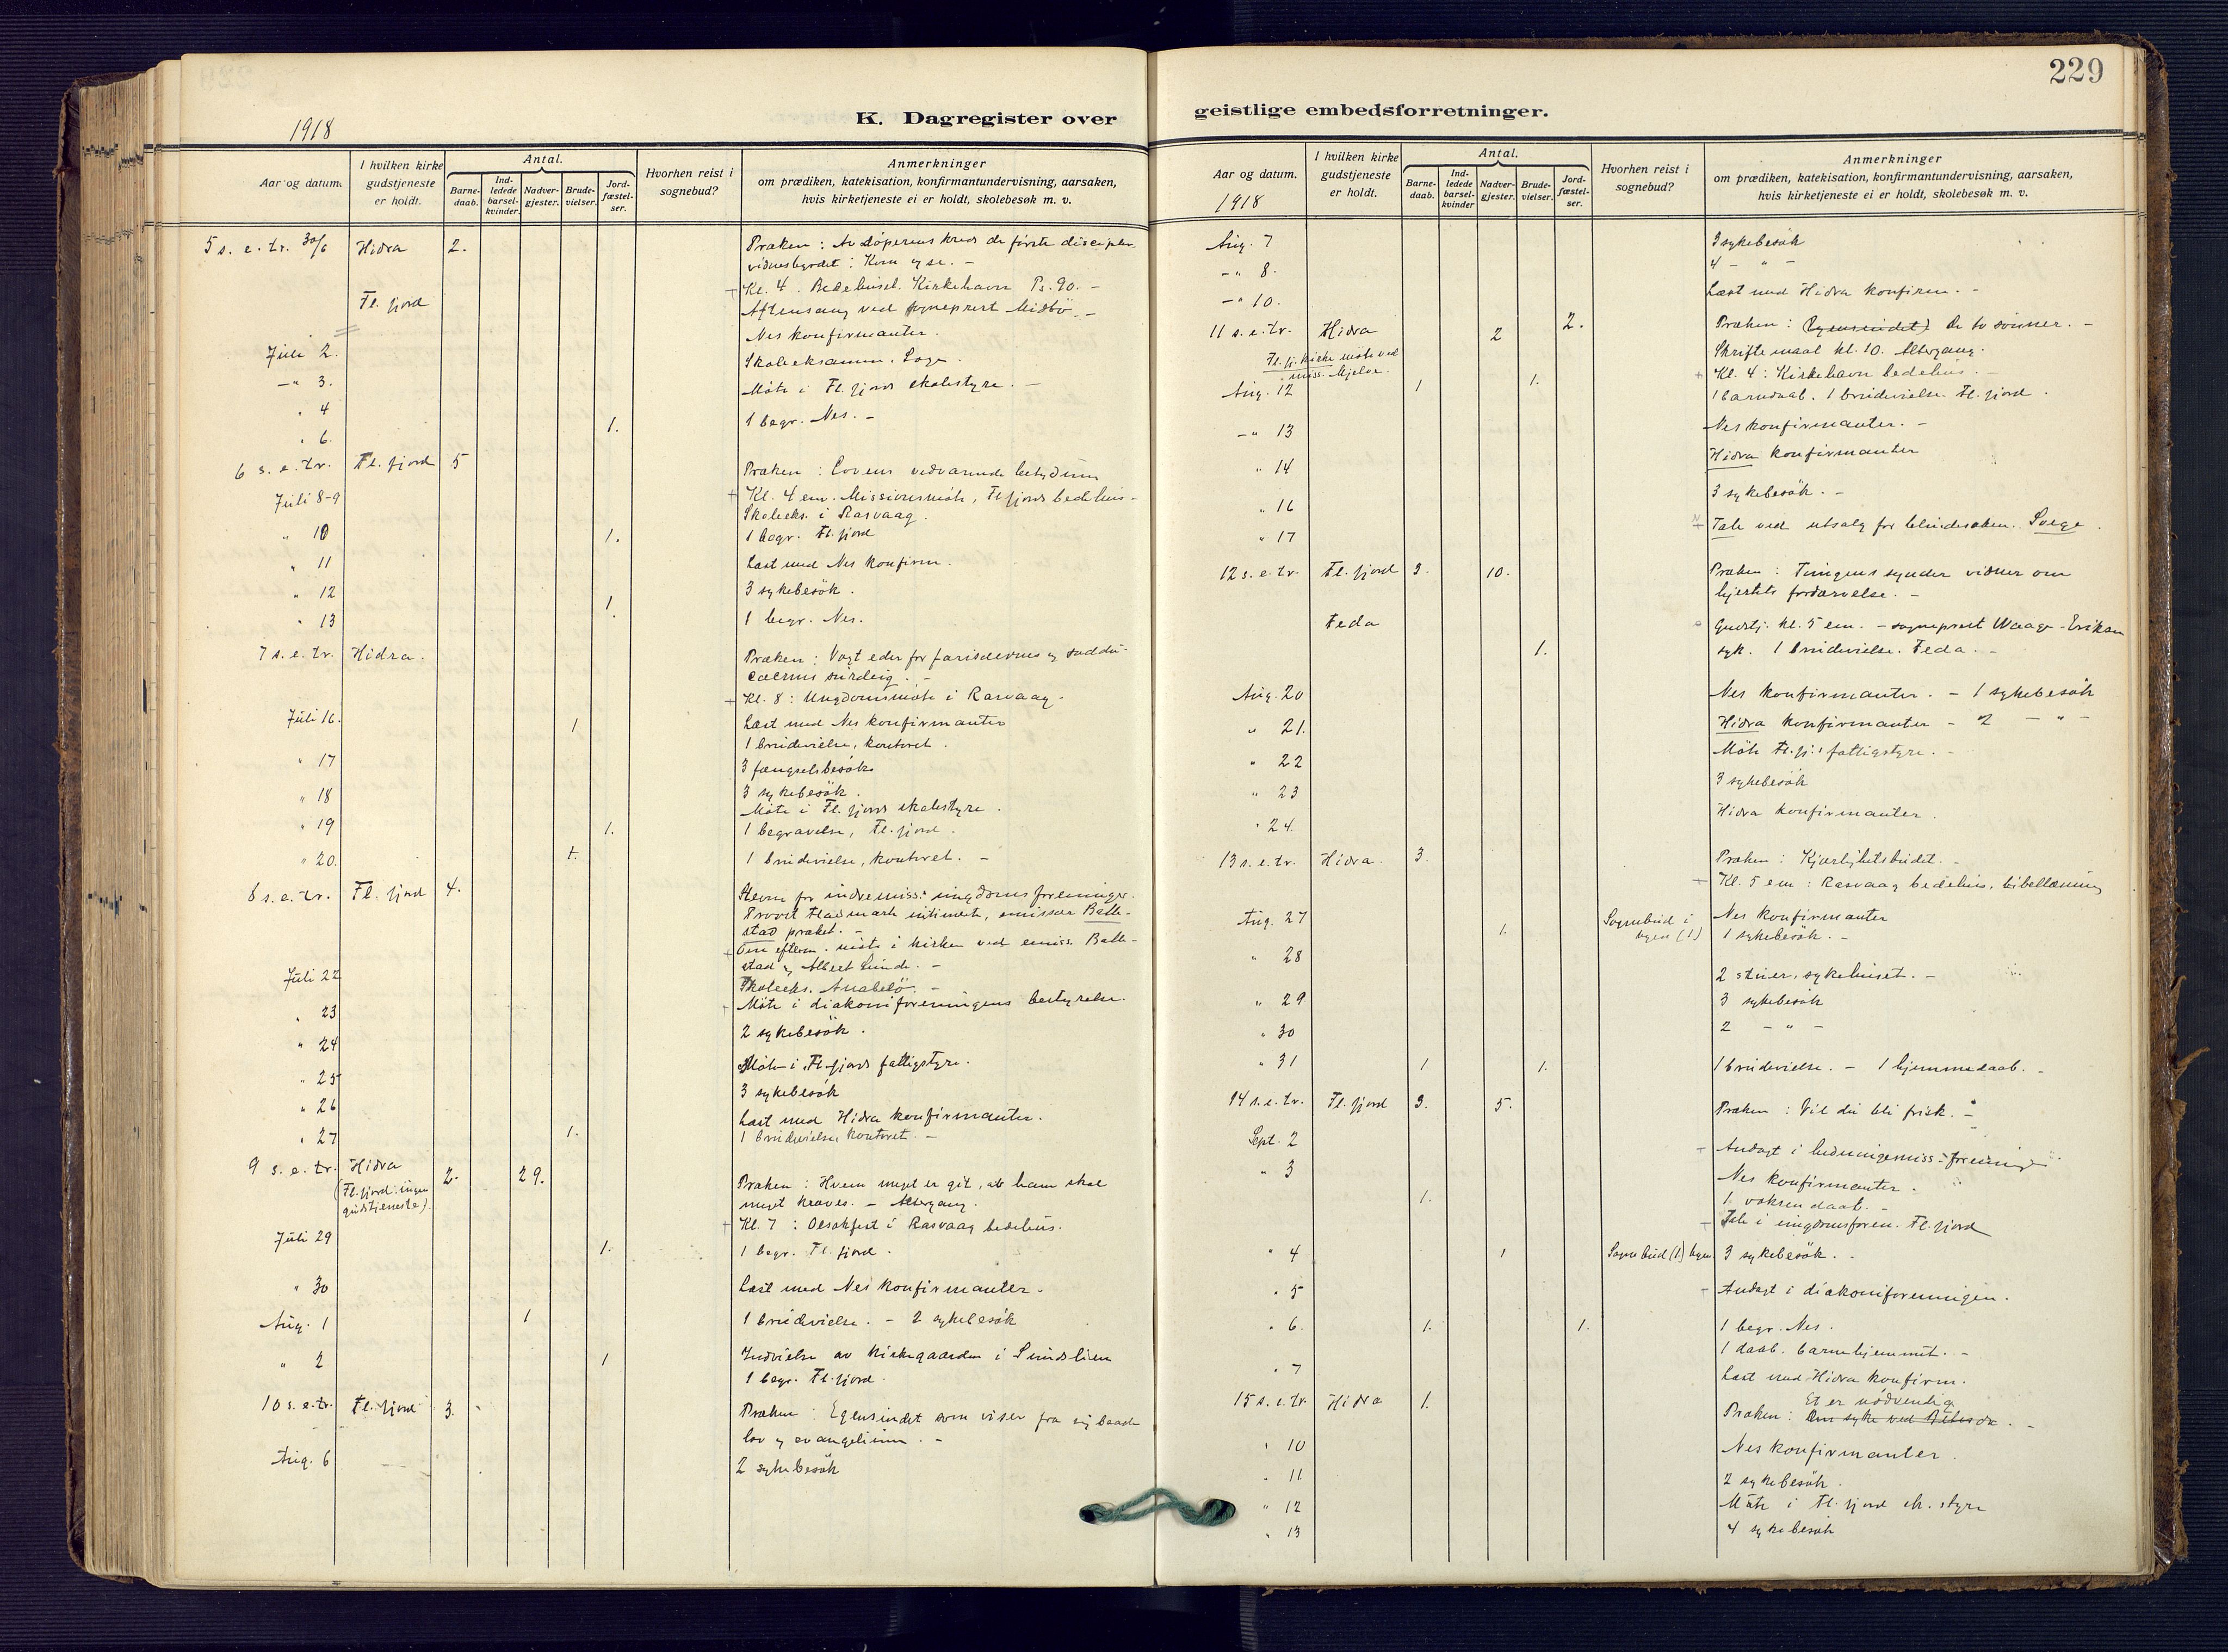 K. Dagregister over
1918
Aar og datum.
I hvilken kirke gudstjeneste er holdt.
Antal.
Barne-daab.
Ind-ledede barsel-kvinder.
Nadver-gjester.
Brude-vielser.
Jord-fæstel-ser.
Hvorhen reist i sognebud?
Anmerkninger
om prædiken, katekisation, konfirmantundervisning, aarsaken,
hvis kirketjeneste ei er holdt, skolebesøk m. v.
5 s. e. tr. 30/6 Hidra 2. Præken: Av döperens kreds de förste disciple.
vidnesbyrdet: Kom og se. -
Kl. 4. Bedehuset. Kirkehavn Ps. 90. -
Fl. fjord Aftensang ved sogneprest Midbö. -
Juli 2. Nes konfirmanter.
-"- 3. Skoleeksamen.
" 4 Möte i Fl. fjords skolestyre. -
" 6. 1. 1 begr. Nes. -
6 s. e. tr. Fl. fjord 5 Præken: Lovens vedvarende betydning
+ Kl. 4 em. Missionsmöte, Fl fjords bedehus -
Juli 8-9 Skoleeks. i Rasvaag.
" 10 1. 1 begr. Fl. fjord
" 11 Læst med Nes konfirm.
" 12 3 sykebesök.
" 13 1. 1 begr. Nes.
7 s. e. tr. Hidra. Præken: Vogt eder for farisæernes og saddu-
cæernes surdeig. -
+ Kl. 8: Ungdomsmöte i Rasvaag.
Juli 16. 1 Læst med Nes konfirmanter
1 brudevielse, kontoret.
" 17 3 fængselsbesök
" 18 3 sykebesök.
Möte i Fl. fjords skolestyre.
" 19 1. 1 begravelse, Fl. fjord.
" 20. 1. 1 brudevielse, kontoret. -
8 s. e. tr. Fl. fjord 4. Stevne for indremiss: ungdomsforeninger.
Provst intimerte, emissær Balle-
stad præket. -
+ Om efterm. möte i kirken ved emiss. Balle-
stad og Albert Lunde. -
Juli 22 Skoleeks. Anabelö. -
+ Möte i diakoniforeningens bestyrelse.
" 23 2 sykebesök.
" 24 Möte i Fl. fjords fattigstyre.
" 25 3 sykebesök
" 26 Læst med Hidra konfirmanter.
" 27 1. 1 brudevielse kontoret. -
9 s. e. tr. Hidra 2. 29. Præken: Hvem meget er git, av ham skal
(Fl. fjord: ingen
gudstjeneste)
meget kræves. - Altergang.
+ Kl. 7: Olsokfest i Rasvaag bedehus.
Juli 29 1. 1 begr. Fl. fjord.
" 30 Læst med Nes konfirmanter.
Aug. 1 1 1 brudevielse. - 2 sykebesök
" 2 1 Indvielse av kirkegaarden i Sundslien
1 begr. Fl. fjord.
10 s. e. tr. Fl. fjord 3. Præken: Egensindet som viser fra sig baade
lov og evangelium. -
Aug. 6 2 sykebesök
229
geistlige embedsforretninger.
Aar og datum.
1918
I hvilken kirke gudstjeneste er holdt.
Antal.
Barne-daab.
Ind-ledede barsel-kvinder
Nadver-gjester.
Brude-vielser.
Jord-fæstel-ser.
Hvorhen reist i sognebud?
Anmerkninger
om prædiken, katekisation, konfirmantundervisning, aarsaken,
hvis kirketjeneste ei er holdt, skolebesøk m. v.
Aug. 7 3 sykebesök
-"- 8. 4 - " -
-"- 10. Læst med Hidra konfirm. -
11 s. e. tr. Hidra 2 2. Præken: (Egensindet) De to sönner. -
Skriftemaal kl. 10. Altergang.
Fl. fj. kirke möte ved
miss. Mjelve.
+ Kl. 4: Kirkehavn bedehus. -
Aug. 12 1 1. 1 barnedaab. 1 brudevielse. Fl. fjord.
-"- 13 Nes konfirmanter. -
" 14 Hidra konfirmanter
" 16 3 sykebesök. -
" 17 Tale ved utsalg for blindesaken.
12 s. e. tr. Fl. fjord 3. 10. Præken: Tungens synder vidner om
hjertets fordærvelse. -
Feda Gudstj. kl. 5 em. - sogneprest Waage-Eriksen
syk. 1. 1 brudevielse. Feda. -
Aug. 20 Nes konfirmanter. - 1 sykebesök
" 21. Hidra konfirmanter - 2 - " -
" 22 Möte Fl. fj.s fattigstyre. -
" 23 3 sykebesök
" 24. Hidra konfirmanter.
13 s. e. tr. Hidra. 3. Præken: Kjærlighetsbudet. -
Kl. 5 em: Rasvaag bedehus, bibellæsning
Aug. 27 1. Sognebud i
byen (1)
Nes konfirmanter
1 sykebesök. -
" 28 2 stuer, sykehuset. -
" 29 3 sykebesök
" 30 2 - " -
" 31 1 1. 1 brudevielse. - 1 hjemmedaab. -
14 s. e. tr. Fl. fjord 3. 5. Præken: Vil du bli frisk. -
Sept. 2 Andagt i hedningemiss-forening
" 3 Nes konfirmanter.
1. 1 voksendaab. -
Tale i ungdomsforen. Fl. fjord
" 4 1 Sognebud (1) byen 3 sykebesök. -
" 5 Andagt i diakoniforeningen.
" 6. 1. 1. 1 begr. Nes.
1 daab. barnehjemmet. -
" 7 Læst med Hidra konfirm.
15 s. e. tr. Hidra 1. Et er nödvendig
Præken: Den syke ved Betesda. -
" 10 Nes konfirmanter.
" 11 2 sykebesök.
" 12 Möte i Fl. fjord sk. styre
" 13 4 sykebesök